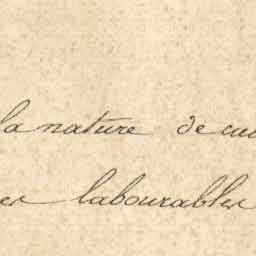 la nature de cu
es labourables